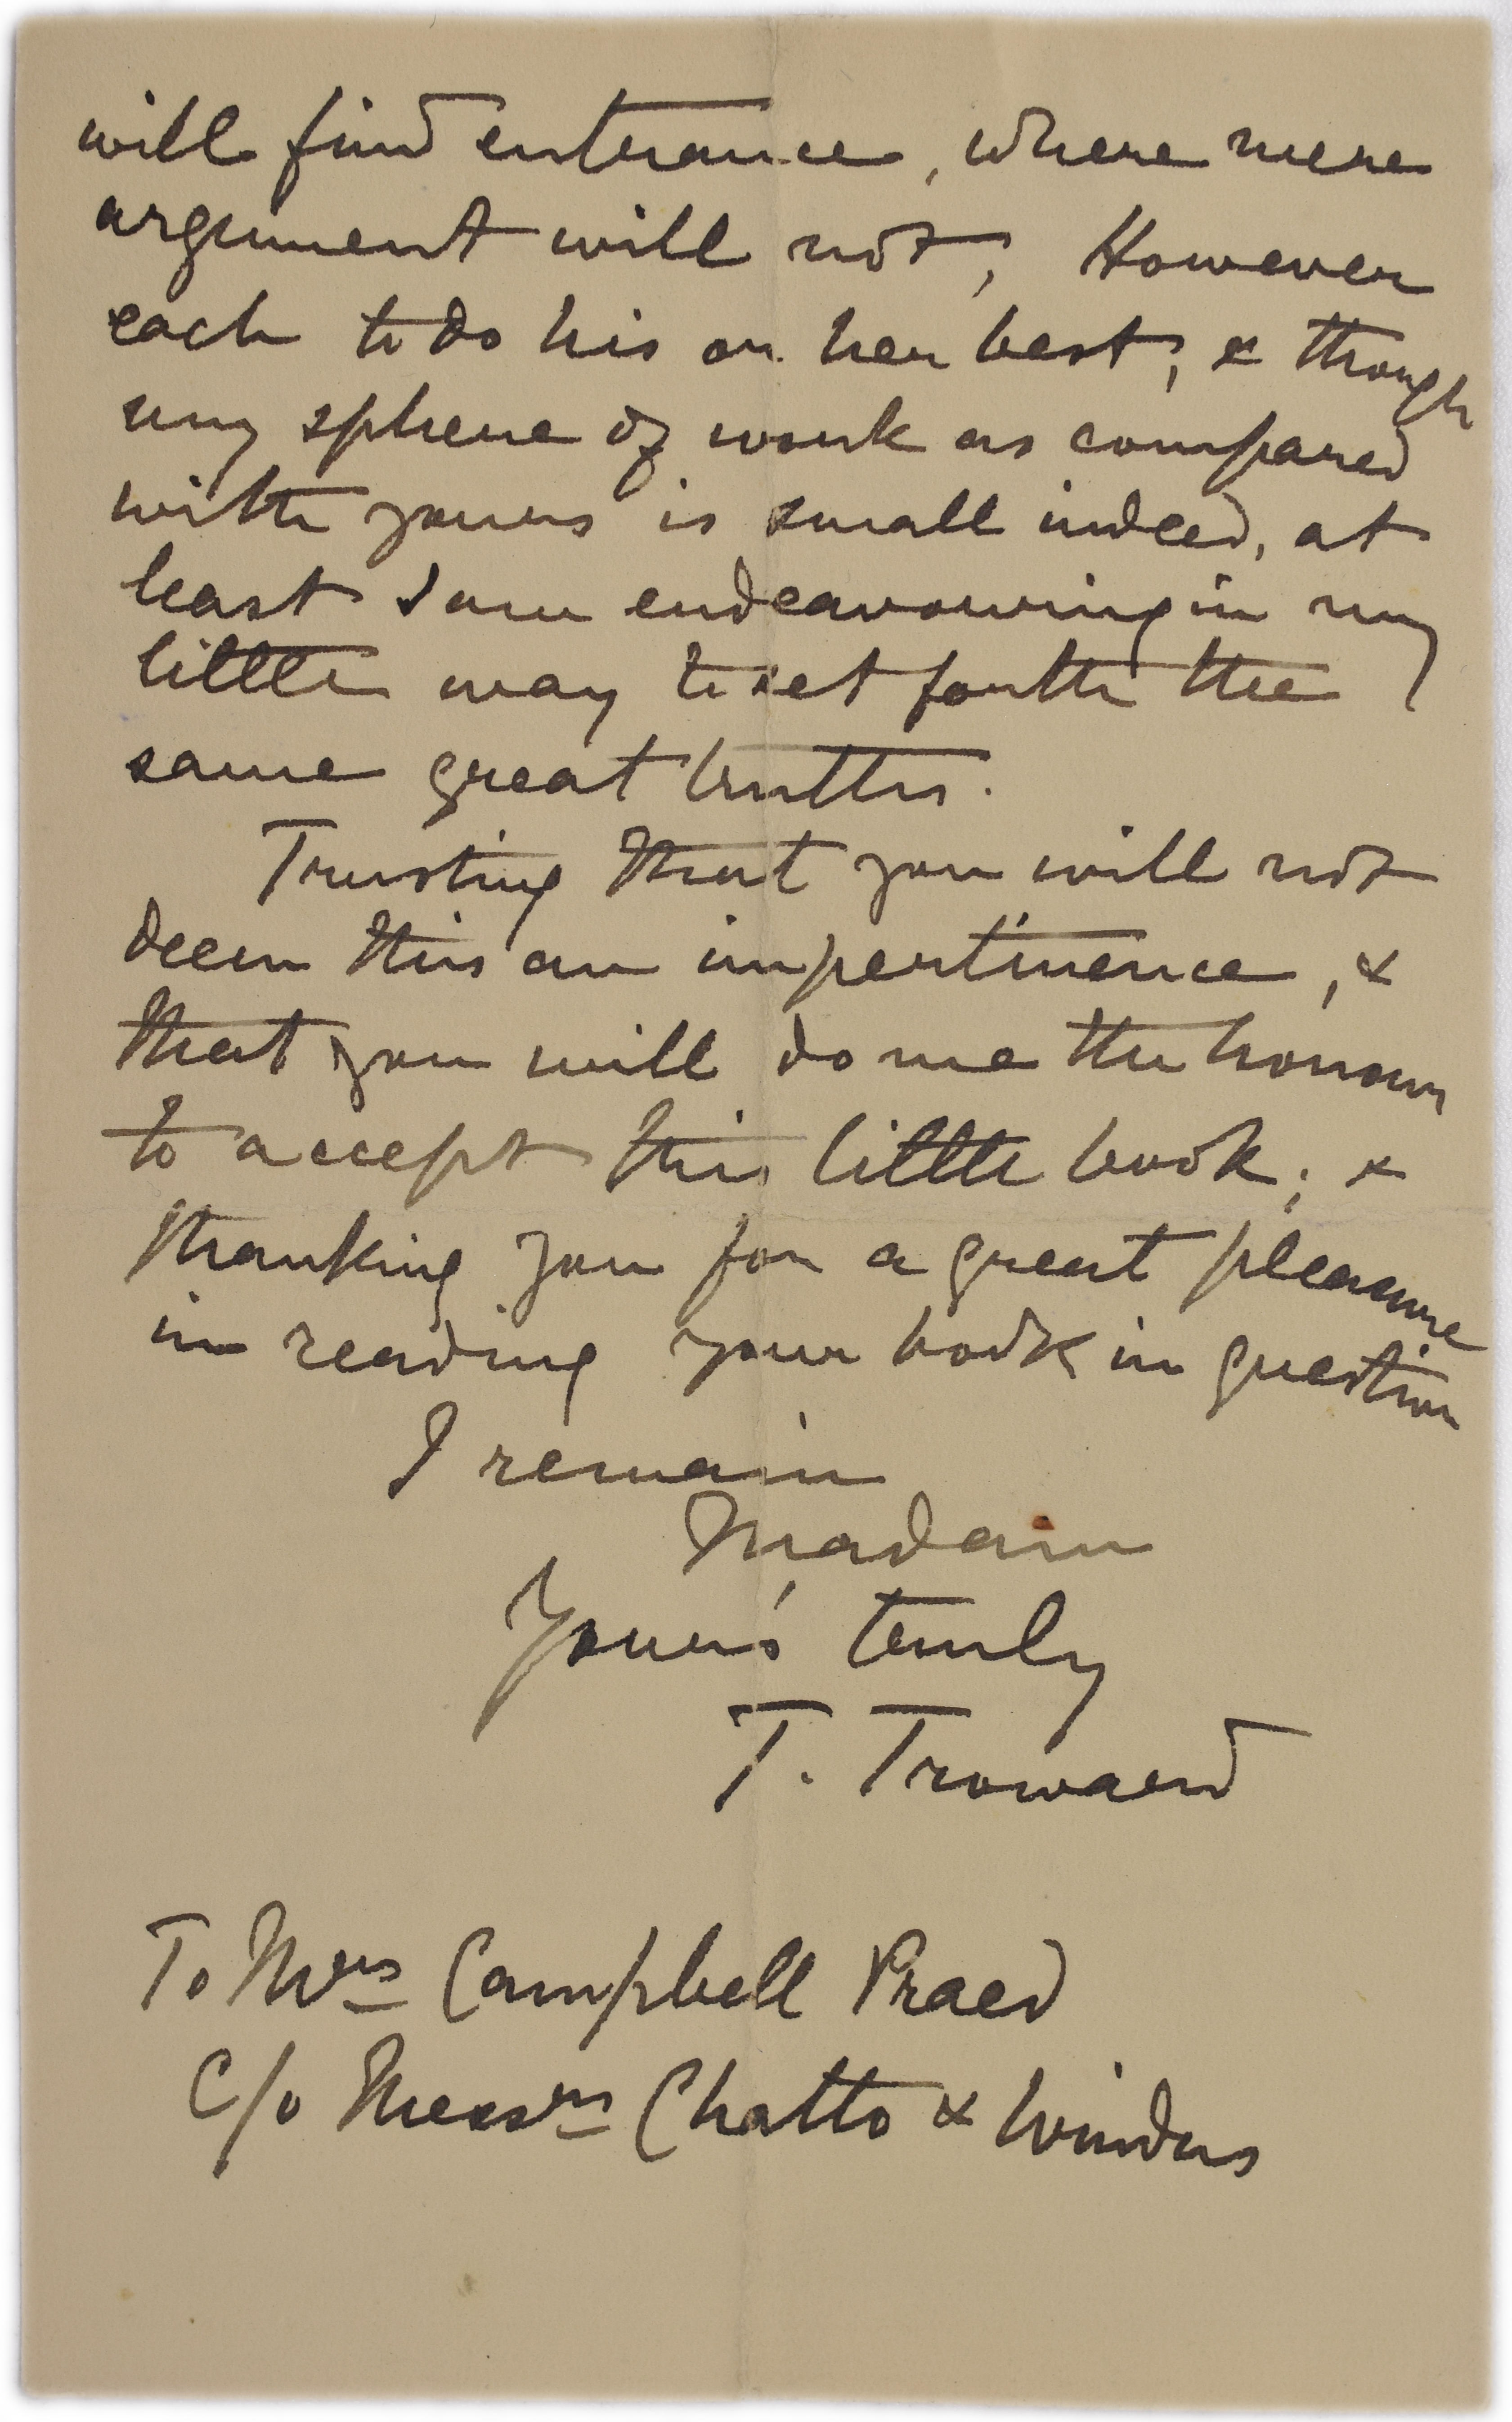 will find entrance, where mere
argument will not, However
each to do his or her best; & though
my sphere of work as compared
with yours is small indeed, at
least I am endeavouring in my
little way to set forth the
same great truths.
Trusting that you will not
deem this an impertinence, &
that you will do me the honour
to accept this little book; &
thanking you for a great pleasure
in reading your book in question
I remain
Madam
Yours truly
T. Troward
To Mrs Campbell Praed
C/o Messrs Chatto & Windus